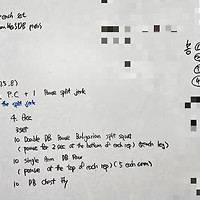 each set
DB press
, 8)
P.C + 1 Pause split jerk
the split jerk
4. Acc
3set
10 Double DB Pause Bulgarian split squat
(pause for 2 sec at the bottom of each rep) (each leg)
10 Single Arm DB Row
(pause at the top of each rep) (5 each arm)
10 DB chest Fly